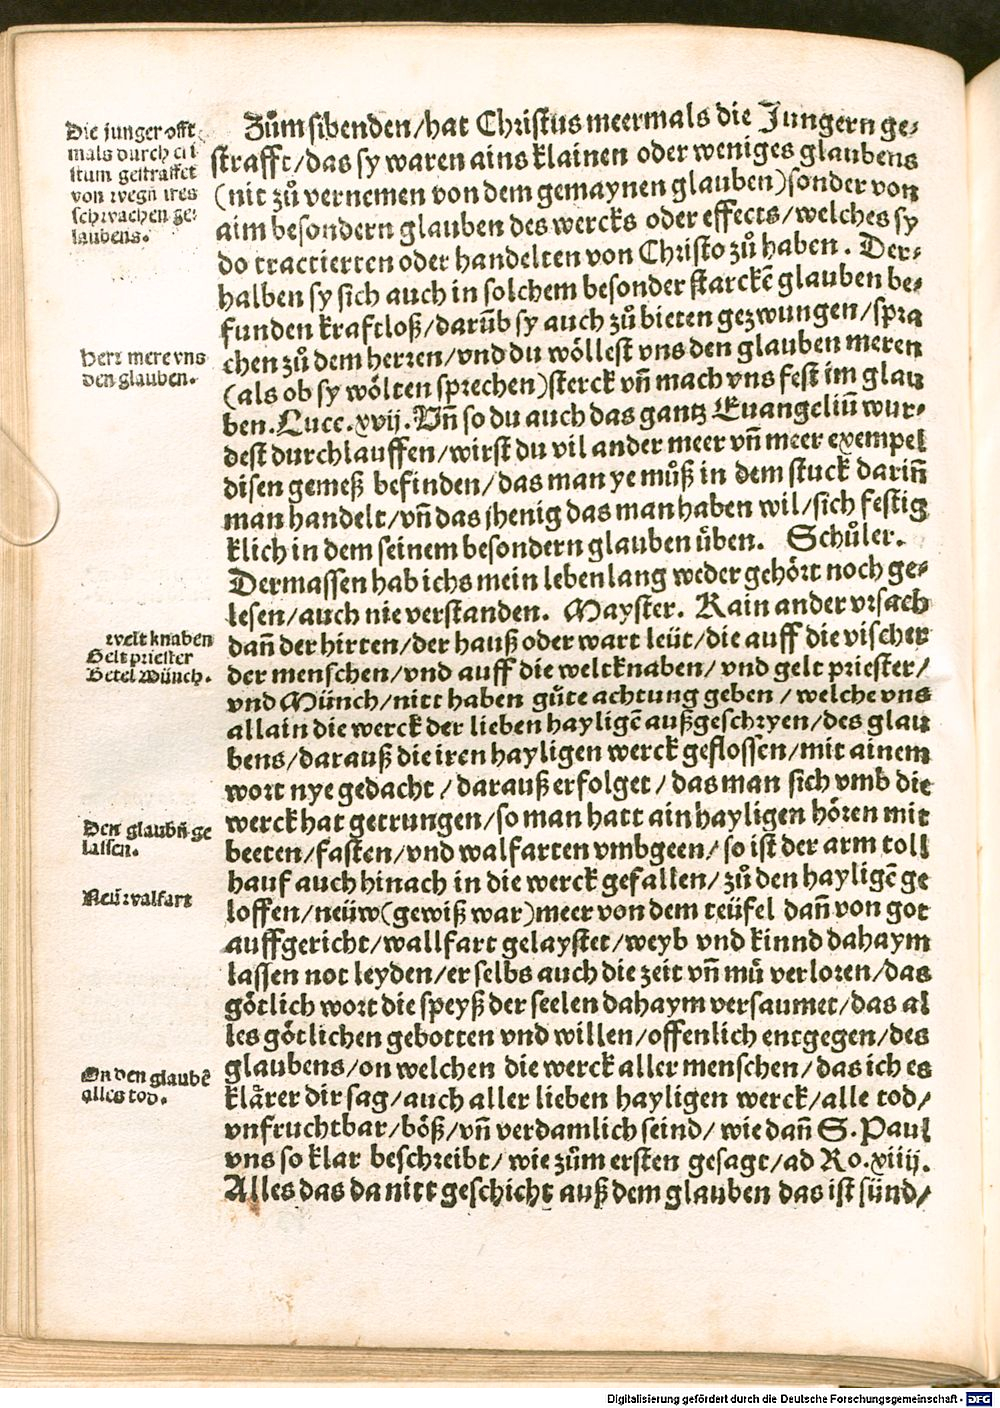 Die junger offt
mals durch cri
stum gestraffet
von wegñ ires
schwachen ge-
laubens.
Herr mere vns
den glauben.
welt knaben
Gelt priester
Betel Münch.
Den glaubñ ge
lassen.
Neü walfart
On den glaubē
alles tod.
Zům sibenden/hat Christus meermals die Jungern ge-
strafft/das sy waren ains klainen oder weniges glaubens
(nit zů vernemen von dem gemaynen glauben)sonder von
aim besondern glauben des wercks oder effects/welches sy
do tractierten oder handelten von Christo zů haben. Der-
halben sy sich auch in solchem besonder starckē glauben be-
funden krafftloß/darūb sy auch zů bieten gezwungen/spra
chen zů dem herren/vnd du wöllest vns den glauben meren
(als ob sy wölten sprechen)sterck vñ mach vns fest im glau
ben. Luce. xvij. Vñ so du auch das gantz Euangeliū wur-
dest durchlauffen/wirst du vil ander meer vñ meer exempel
disen gemeß befinden/das man ye můß in dem stuck dariñ
man handelt/vñ das jhenig das man haben wil/sich festig
klich in dem seinem besondern glauben üben. Schůler.
Dermassen hab ichs mein lebenlang weder gehört noch ge-
lesen/auch nie verstanden. Mayster. Kain ander vrsach
dañ der hirten/der hauß oder wart leüt/die auff die vischer
der menschen/vnd auff die weltknaben/vnd gelt priester/
vnd Münch/nitt haben gůte achtung geben/welche vns
allain die werck der lieben hayligē außgeschryen/des glau
bens/darauß die iren hayligen werck geflossen/mit ainem
wort nye gedacht/darauß erfolget/das man sich vmb die
werck hat getrungen/so man hatt ain hayligen hören mit
beeten/fasten/vnd walfarten vmbgeen/so ist der arm toll
hauf auch hinach in die werck gefallen/zů den hayligē ge
loffen/neüw(gewiß war)meer von dem teüfel dañ von got
auffgericht/wallfart gelaystet/weyb vnd kinnd dahaym
lassen not leyden/er selbs auch die zeit vñ mü verloren/das
götlich wort die speyß der seelen dahaym versaumet/das al
les götlichen gebotten vnd willen/offenlich entgegen/des
glaubens/on welchen die werck aller menschen/das ich es
klärer dir sag/auch aller lieben hayligen werck/alle tod/
vnfruchtbar/böß/vñ verdamlich seind/wie dañ S. Paul
vns so klar beschreibt/wie zům ersten gesagt/ad Ro. xiiij.
Alles das da nitt geschicht auß dem glauben das ist sünd/
Digitalisierung gefördert durch die Deutsche Forschungsgemeinschaft - DFG